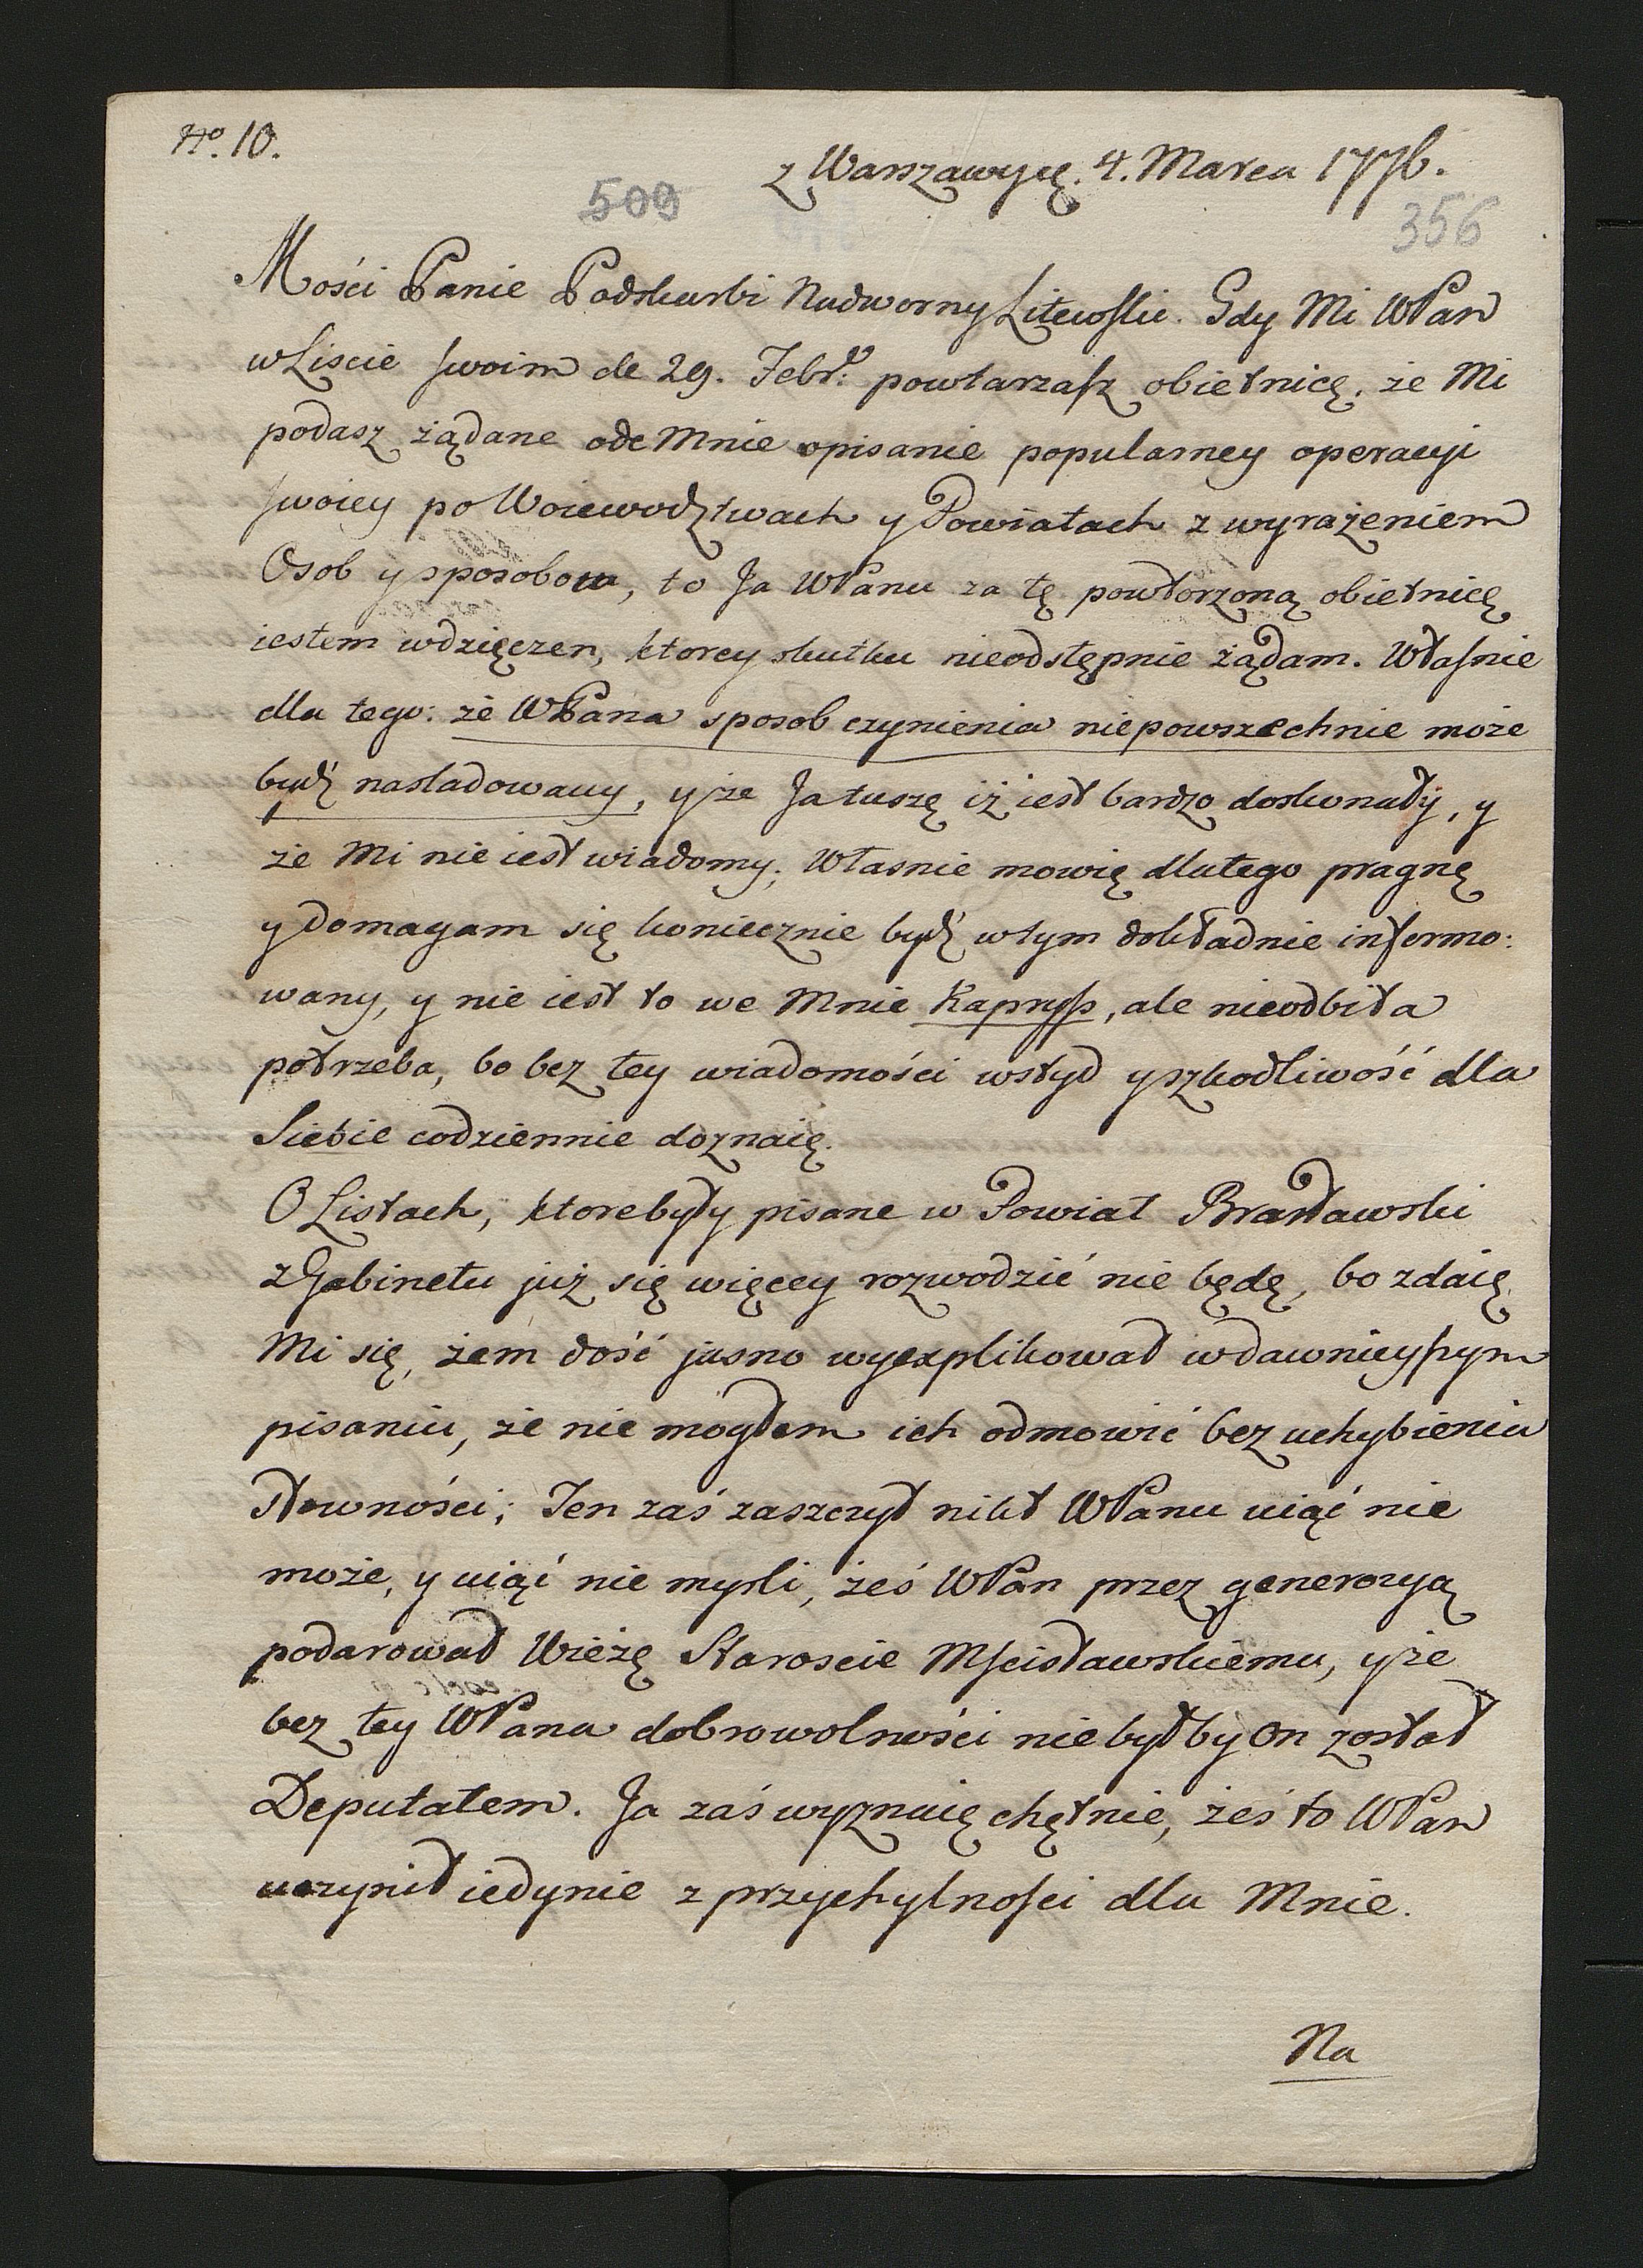 No. 10.
z Warszawy d. 4. Marca 1776.
509
356
Mości Panie Podskarbi Nadworny Litewski. Gdy Mi WPan
w Liscie swoim de 29. Febr: powtarzasz obietnicę, że Mi
podasz żądane ode Mnie opisanie popularney operacyi
swoiey po Woiewodztwach y Powiatach z wyrażeniem
Osob y sposobow, to Ja WPanu za tę powtorzoną obietnicę
iestem wdzięczen, ktorey skutku nieodstępnie żądam. Własnie
dla tego: że WPana sposob czynienia niepowszechnie może
bydź nasladowany, y że Ja tuszę iż iest bardzo doskonały, y
że Mi nie iest wiadomy; Własnie mowię dlatego pragnę
y domagam się koniecznie bydź w tym dokładnie informo:
wany, y nie iest to we Mnie Kapryss, ale nieodbita
potrzeba, bo bez tey wiadomości wstyd y szkodliwość dla
Siebie codziennie doznaię.
O Listach, ktore były pisane w Powiat Brasławski
z Gabinetu już się więcey rozwodzić nie będę, bo zdaię
Mi się, żem dość jasno wyexplikował w dawnieyszym
pisaniu, że nie mogłem ich odmowić bez uchybienia
słowności; Ten zaś zaszczyt nikt WPanu uiąć nie
może, y uiąć nie mysli, żeś WPan przez generozyą
podarował Wieżę Staroscie Mscisławskiemu, y że
bez tey WPana dobrowolności nie byłby On został
Deputatem. Ja zaś wyznaię chętnie, żeś to WPan
uczynił iedynie z przychylności dla Mnie.
Na